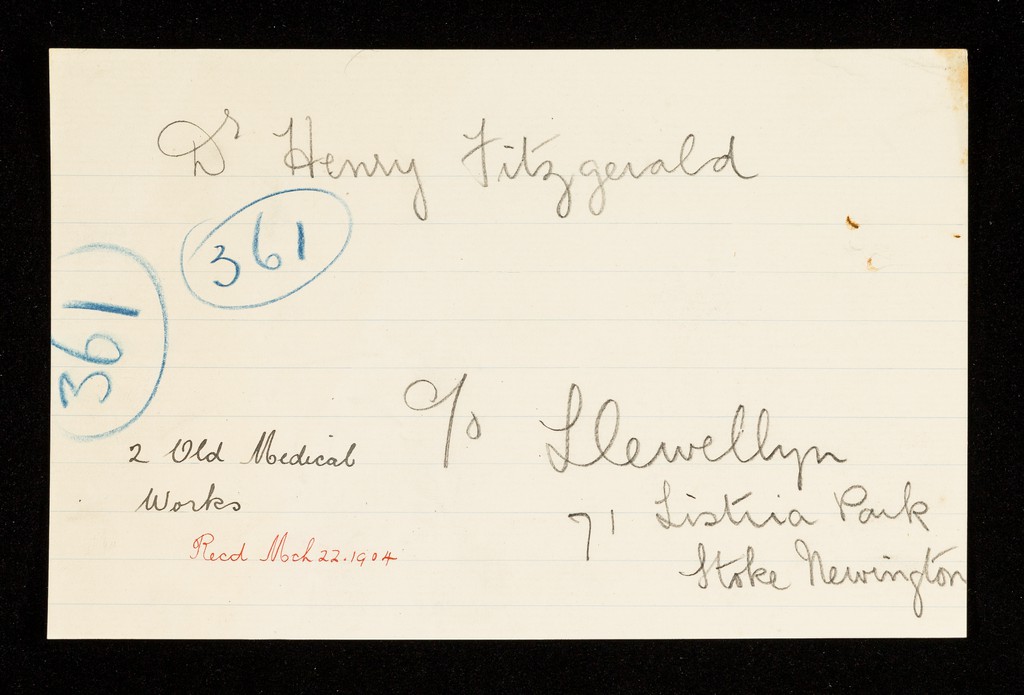 Dr Henry Fitzgerald
361
361
c/o Llewellyn
71 Listria Park
Stoke Newington
2 Old Medical
Works
Recd Mch 22. 1904